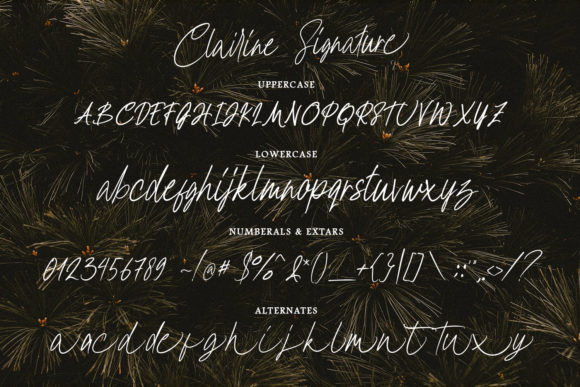 Clairine Signature
UPPERCASE
ABCDEFGHIJKLMNOPQRSTUVWXYZ
LOWERCASE
abcdefghijklmnopqrstuvwxyz
NUMBERALS & EXTARS
0123456789 ~!@#$%^&*()_+{}|[]\:;"',.<>/?
ALTERNATES
a c d d e f g h i j k l m n t t u x y